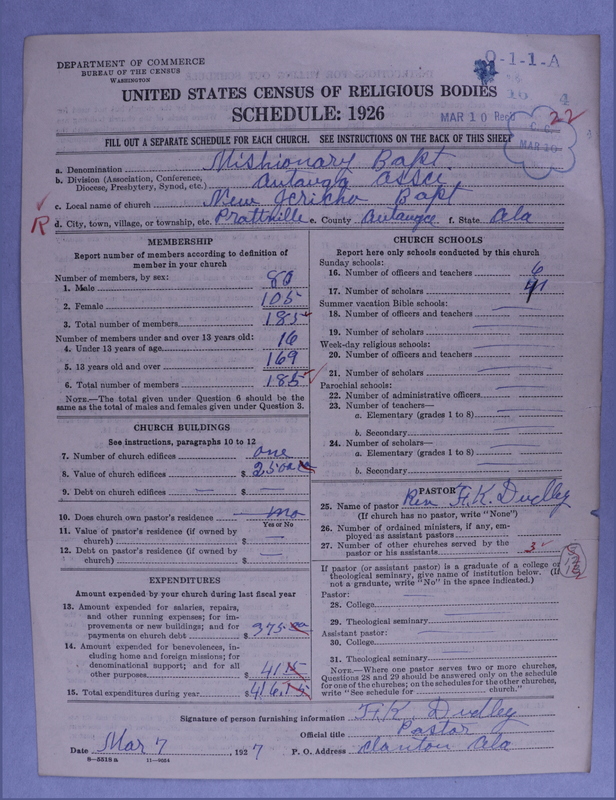 DEPARTMENT OF COMMERCE
BUREAU OF THE CENSUS
WASHINGTON
0-1-1-A
UNITED STATES CENSUS OF RELIGIOUS BODIES
SCHEDULE: 1926
MAR 10 Rec'd
22
FILL OUT A SEPARATE SCHEDULE FOR EACH CHURCH. SEE INSTRUCTIONS ON THE BACK OF THIS SHEET
MAR 10
a. Denomination Mishionary Bapt.
b. Division (Association, Conference, Diocese, Presbytery, Synod, etc.) Autauga Assce
c. Local name of church New Jericho Bapt
R d. City, town, village, or township, etc. Prattville e. County Autauga f. State Ala
MEMBERSHIP
Report number of members according to definition of
member in your church
Number of members, by sex:
1. Male 80
2. Female 105
3. Total number of members 185
Number of members under and over 13 years old:
4. Under 13 years of age 16
5. 13 years old and over 169
6. Total number of members 185
NOTE.—The total given under Question 6 should be the
same as the total of males and females given under Question 3.
CHURCH BUILDINGS
See instructions, paragraphs 10 to 12
7. Number of church edifices one
8. Value of church edifices $ 2500
9. Debt on church edifices — $ —
10. Does church own pastor's residence no
Yes or No
11. Value of pastor's residence (if owned by
church) $ —
12. Debt on pastor's residence (if owned by
church) $ —
EXPENDITURES
Amount expended by your church during last fiscal year
13. Amount expended for salaries, repairs,
and other running expenses; for im-
provements or new buildings; and for
payments on church debt $ 375.00
14. Amount expended for benevolences, in-
cluding home and foreign missions; for
denominational support; and for all
other purposes $ 41.15
15. Total expenditures during year $ 416.15
CHURCH SCHOOLS
Report here only schools conducted by this church
Sunday schools:
16. Number of officers and teachers 6
17. Number of scholars 41
Summer vacation Bible schools:
18. Number of officers and teachers —
19. Number of scholars —
Week-day religious schools:
20. Number of officers and teachers —
21. Number of scholars —
Parochial schools:
22. Number of administrative officers —
23. Number of teachers—
a. Elementary (grades 1 to 8) —
b. Secondary —
24. Number of scholars—
a. Elementary (grades 1 to 8) —
b. Secondary —
PASTOR
25. Name of pastor Rev F.K. Dudley
(If church has no pastor, write "None")
26. Number of ordained ministers, if any, em-
ployed as assistant pastors —
27. Number of other churches served by the
pastor or his assistants 3
If pastor (or assistant pastor) is a graduate of a college or
theological seminary, give name of institution below. (If
not a graduate, write "No" in the space indicated.)
Pastor:
28. College —
29. Theological seminary —
Assistant pastor:
30. College —
31. Theological seminary —
NOTE.—Where one pastor serves two or more churches,
Questions 28 and 29 should be answered only on the schedule
for one of the churches; on the schedules for the other churches,
write "See schedule for church."
Signature of person furnishing information F.K Dudley
Official title Pastor
Date Mar 7, 1927 P. O. Address Clanton Ala
8—5518 a 11—9054